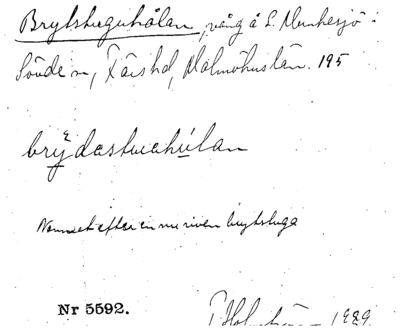 Brytstuguhålan, vång å L. Munkesjö:
Sövde sn, Färs hd, Malmöhus län. 195
brydastuahulan
Namnet efter en nu riven brytstuga
Nr 5592.
1929.